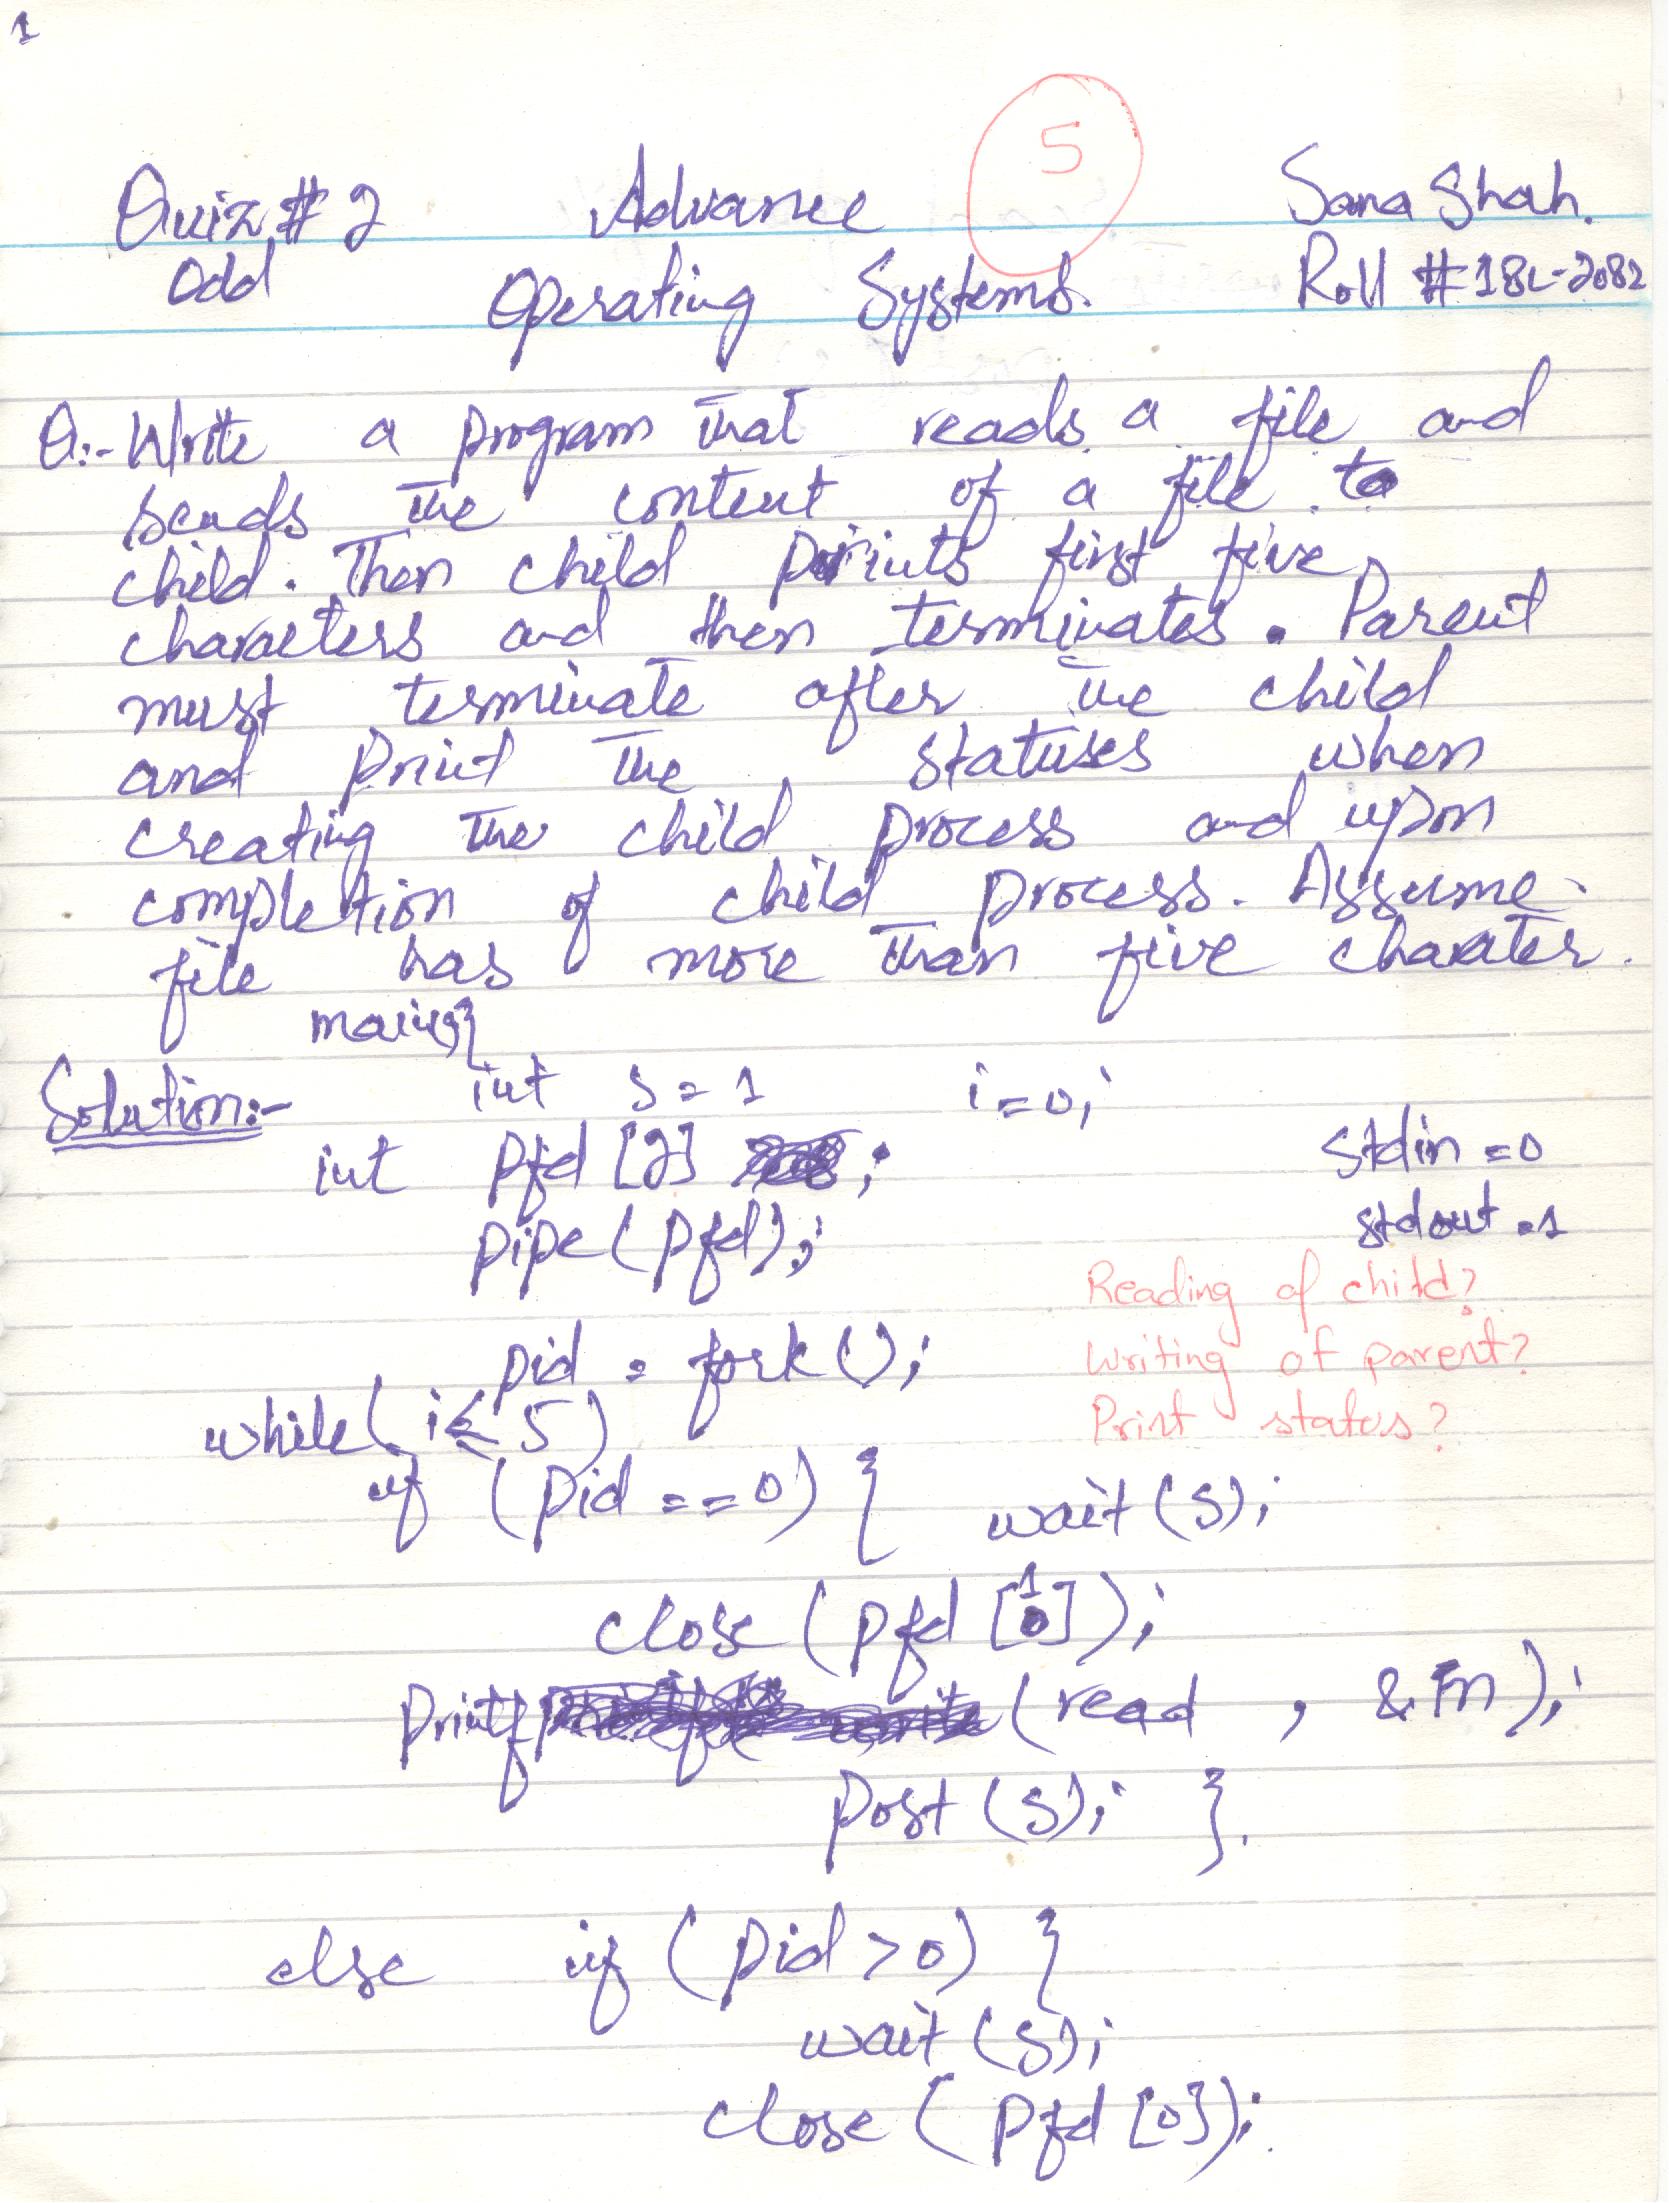 1
5
Quiz # 2 Advance Sana Shah.
Odd Operating Systems. Roll # 18L-2082
Q:- Write a program that reads a file and
sends the content of a file to
child. Then child prints first five
characters and then terminates. Parent
must terminate after the child
and print the statuses when
creating the child process and upon
completion of child process. Assume
file has more than five charater.
main(){
Solution:- int s = 1 i = 0;
int pfd [2] ; stdin = 0
pipe (pfd); stdout = 1
Reading of child?
pid = fork (); Writing of parent?
while( i ≤ 5) Print status?
if (pid == 0) { wait (s);
close (pfd [1]);
printf (read , & Fn);
post (s); }.
else if (pid > 0) {
wait (s);
close (pfd [0]);